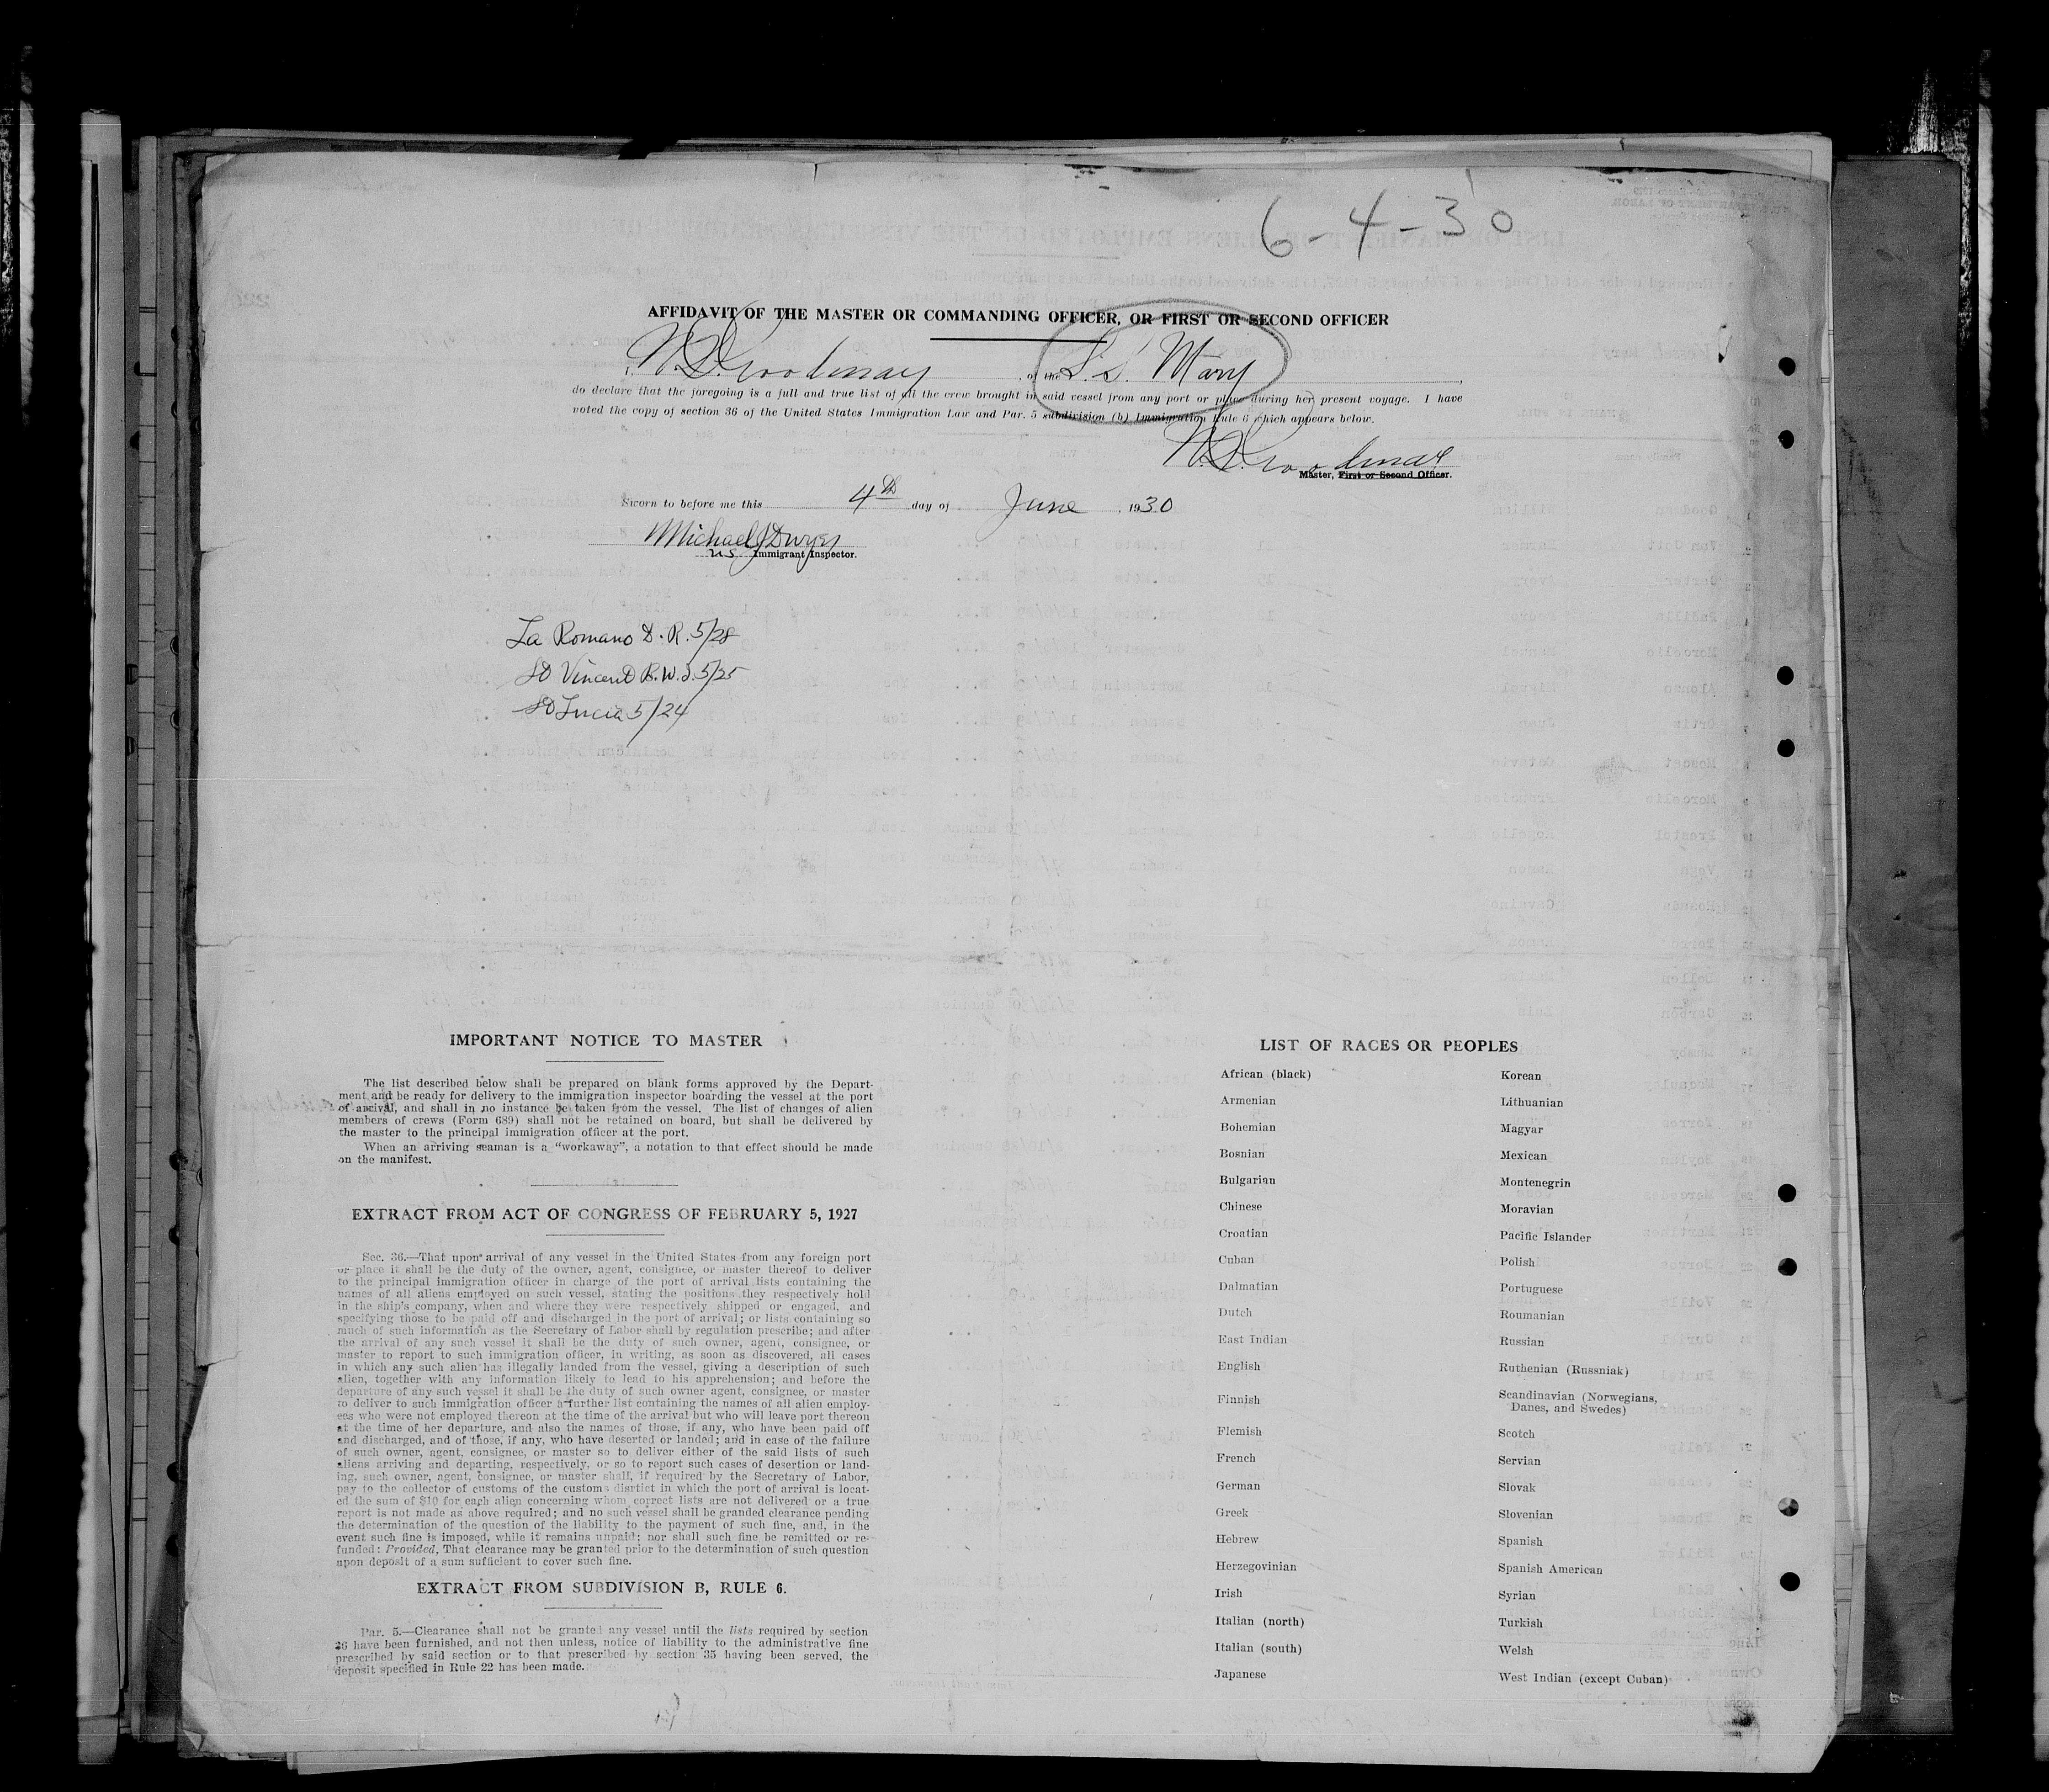 6-4-30
AFFIDAVIT OF THE MASTER OR COMMANDING OFFICER, OR FIRST OR SECOND OFFICER
I, of the S.S. Mary,
do declare that the foregoing is a full and true list of all the crew brought in said vessel from any port or place during her present voyage. I have
noted the copy of section 36 of the United States Immigration Law and Par. 5 subdivision (b) Immigration Rule 6 which appears below.
Master, First or Second Officer.
Sworn to before me this 4th day of June, 1930
Michael J Dwyer
U.S. Immigrant Inspector.
La Romano D. R. 5/28
St Vincent B.W.I. 5/25
St Lucia 5/24
IMPORTANT NOTICE TO MASTER
The list described below shall be prepared on blank forms approved by the Depart-
ment and be ready for delivery to the immigration inspector boarding the vessel at the port
of arrival, and shall in no instance be taken from the vessel. The list of changes of alien
members of crews (Form 689) shall not be retained on board, but shall be delivered by
the master to the principal immigration officer at the port.
When an arriving seaman is a "workaway", a notation to that effect should be made
on the manifest.
EXTRACT FROM ACT OF CONGRESS OF FEBRUARY 5, 1927
Sec. 36.—That upon arrival of any vessel in the United States from any foreign port
or place it shall be the duty of the owner, agent, consignee, or master thereof to deliver
to the principal immigration officer in charge of the port of arrival lists containing the
names of all aliens employed on such vessel, stating the positions they respectively hold
in the ship's company, when and where they were respectively shipped or engaged, and
specifying those to be paid off and discharged in the port of arrival; or lists containing so
much of such information as the Secretary of Labor shall by regulation prescribe; and after
the arrival of any such vessel it shall be the duty of such owner, agent, consignee, or
master to report to such immigration officer, in writing, as soon as discovered, all cases
in which any such alien has illegally landed from the vessel, giving a description of such
alien, together with any information likely to lead to his apprehension; and before the
departure of any such vessel it shall be the duty of such owner agent, consignee, or master
to deliver to such immigration officer a further list containing the names of all alien employ-
ees who were not employed thereon at the time of the arrival but who will leave port thereon
at the time of her departure, and also the names of those, if any, who have been paid off
and discharged, and of those, if any, who have deserted or landed; and in case of the failure
of such owner, agent, consignee, or master so to deliver either of the said lists of such
aliens arriving and departing, respectively, or so to report such cases of desertion or land-
ing, such owner, agent, consignee, or master shall, if required by the Secretary of Labor,
pay to the collector of customs of the customs disrtict in which the port of arrival is locat-
ed the sum of $10 for each alien concerning whom correct lists are not delivered or a true
report is not made as above required; and no such vessel shall be granded clearance pending
the determination of the question of the liability to the payment of such fine, and, in the
event such fine is imposed, while it remains unpaid; nor shall such fine be remitted or re-
funded: Provided, That clearance may be granted prior to the determination of such question
upon deposit of a sum sufficient to cover such fine.
EXTRACT FROM SUBDIVISION B, RULE 6.
Par. 5.—Clearance shall not be granted any vessel until the lists required by section
36 have been furnished, and not then unless, notice of liability to the administrative fine
prescribed by said section or to that prescribed by section 35 having been served, the
deposit specified in Rule 22 has been made.
LIST OF RACES OR PEOPLES
African (black)
Armenian
Bohemian
Bosnian
Bulgarian
Chinese
Croatian
Cuban
Dalmatian
Dutch
East Indian
English
Finnish
Flemish
French
German
Greek
Hebrew
Herzegovinian
Irish
Italian (north)
Italian (south)
Japanese
Korean
Lithuanian
Magyar
Mexican
Montenegrin
Moravian
Pacific Islander
Polish
Portuguese
Roumanian
Russian
Ruthenian (Russniak)
Scandinavian (Norwegians,
Danes, and Swedes)
Scotch
Servian
Slovak
Slovenian
Spanish
Spanish American
Syrian
Turkish
Welsh
West Indian (except Cuban)